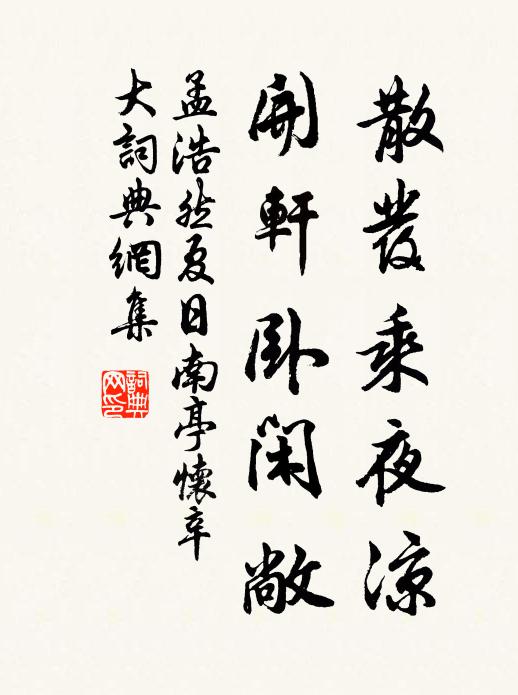 散發乘夜涼
開軒卧閑敞
孟浩然夏日南亭懷辛
大詞典網集
詞典網印